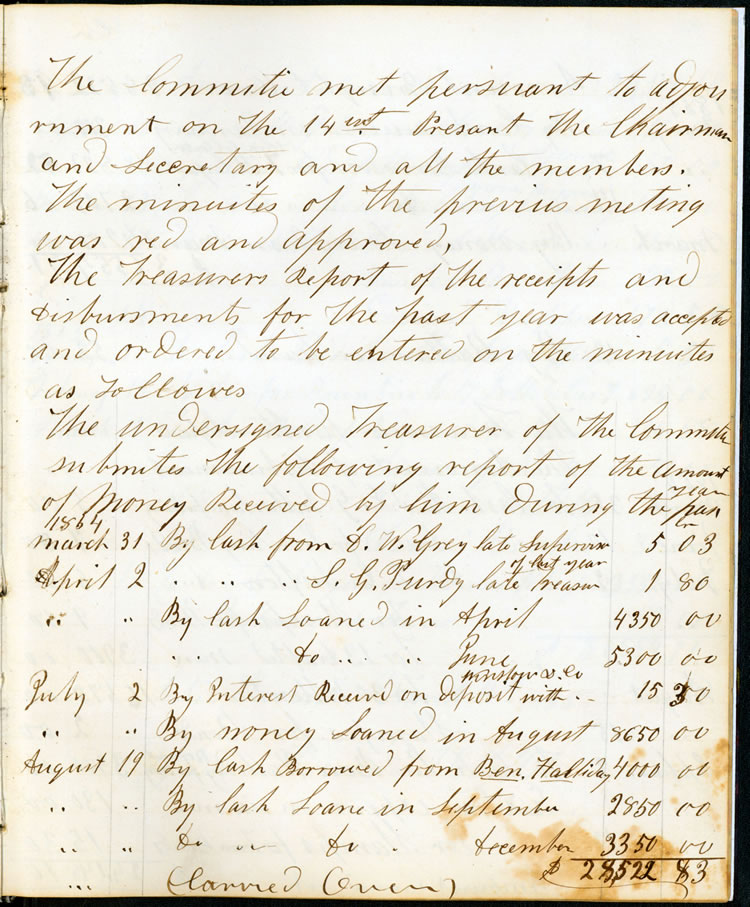 The Committie met persuant to adjou
rnment on the 14 inst Presant the Chairman
and Seccretary and all the members.
The minuites of the previus meting
was red and approved,
The Treasurers Report of the receipts and
disbursments for the past year was accepted
and ordered to be entered on the minuites
as followes
The undersigned Treasurer of the Committe
submites the following report of the amount
of money Received by him during the past
year
1864
march 31 By Cash from S. W. Grey late Supervisor 5 03
of last year
April 2 " " " S. G. Purdy late Treasur 1 80
" " By Cash Loaned in April 4350 00
" do " " June 5300 00
Winslow & Co
July 2 By Interest Received on deposit with " 15 30
" " By money Loaned in August 8650 00
August 19 By Cash Borrowed from Ben. Halliday 4000 00
" " By Cash Loane in September 2850 00
" " do " do " december 3350 00
$ 28522 83
" (Carried Over)